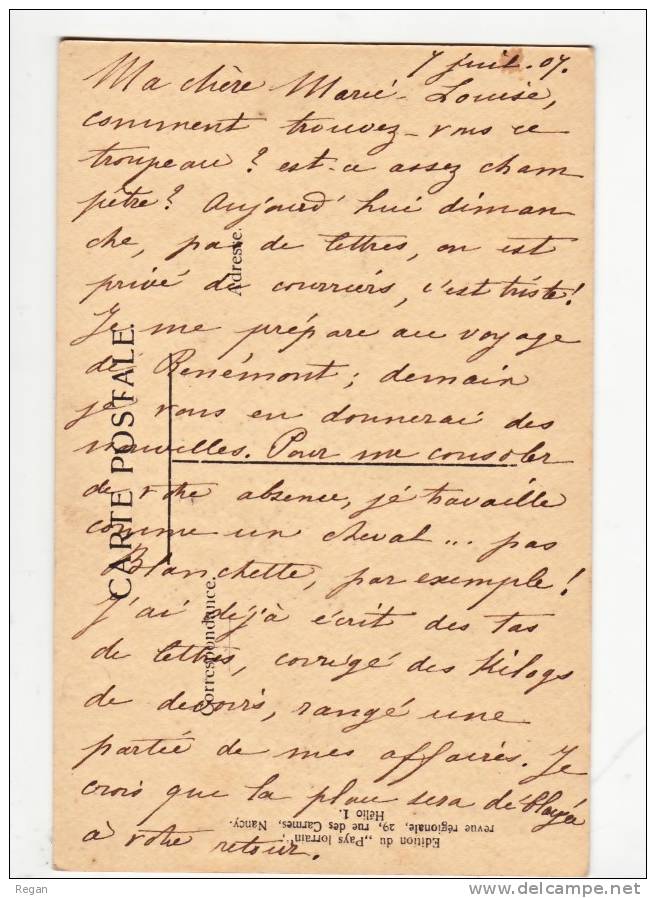 7 juil. 07.
Ma chère Marie-Louise,
comment trouvez-vous ce
troupeau ? est-ce assez cham
pêtre ? Aujourd'hui diman
che, pas de lettres, on est
privé de courriers, c'est triste !
Je me prépare au voyage
de Renémont ; demain
je vous en donnerai des
nouvelles. Pour me consoler
de votre absence, je travaille
comme un cheval ... pas
Blanchette, par exemple !
J'ai déjà écrit des tas
de lettres, corrigé des kilogs
de devoirs, rangé une
partie de mes affaires. Je
crois que la place sera déblayée
à votre retour.
CARTE POSTALE.
Adresse.
Correspondance.
Edition du „Pays lorrain",
revue régionale, 29, rue des Carmes, Nancy.
Hélio 1.
Regan
delcampe.net